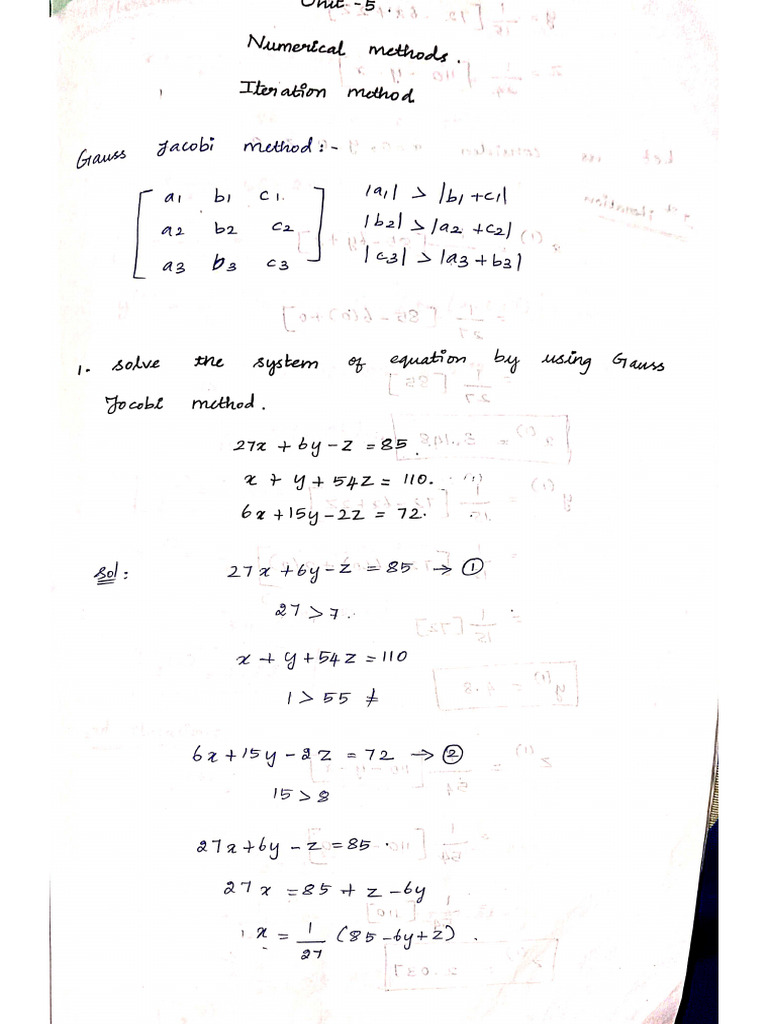 Unit-5.
Numerical methods.
Iteration method
Gauss Jacobi method:-
[ a1 b1 c1 ] |a1| > |b1+c1|
[ a2 b2 c2 ] |b2| > |a2+c2|
[ a3 b3 c3 ] |c3| > |a3+b3|
1. solve the system of equation by using Gauss
Jocobi method.
27x + 6y - z = 85.
x + y + 54z = 110.
6x + 15y - 2z = 72.
Sol: 27x + 6y - z = 85 → ①
27 > 7.
x + y + 54z = 110
1 > 55 ≠
6x + 15y - 2z = 72 → ②
15 > 8
27x + 6y - z = 85.
27x = 85 + z - 6y
x = 1/27 (85 - 6y + z).